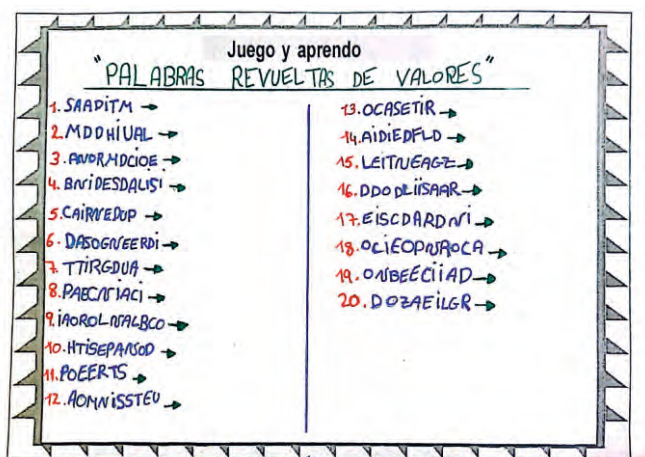 Juego y aprendo
"PALABRAS REVUELTAS DE VALORES"
1. SAADITM →
2. MDDHIUAL →
3. ANDRMDCIOE →
4. BNIDESDALISI →
5. CAIRNEDUP →
6. DASOGNEERDI →
7. TTIRGDUA →
8. PAECNIACI →
9. IAOROLNALBCO →
10. HTISEPANSOD →
11. POEERTS →
12. AOMNISSTEU →
13. OCASETIR →
14. AIDIEDFLD →
15. LEITNUEAGZ →
16. DDODLIISAAR →
17. EISCDARDNI →
18. OCIEOPNAOCA →
19. ONBEECIIAD →
20. DOZAEILGR →